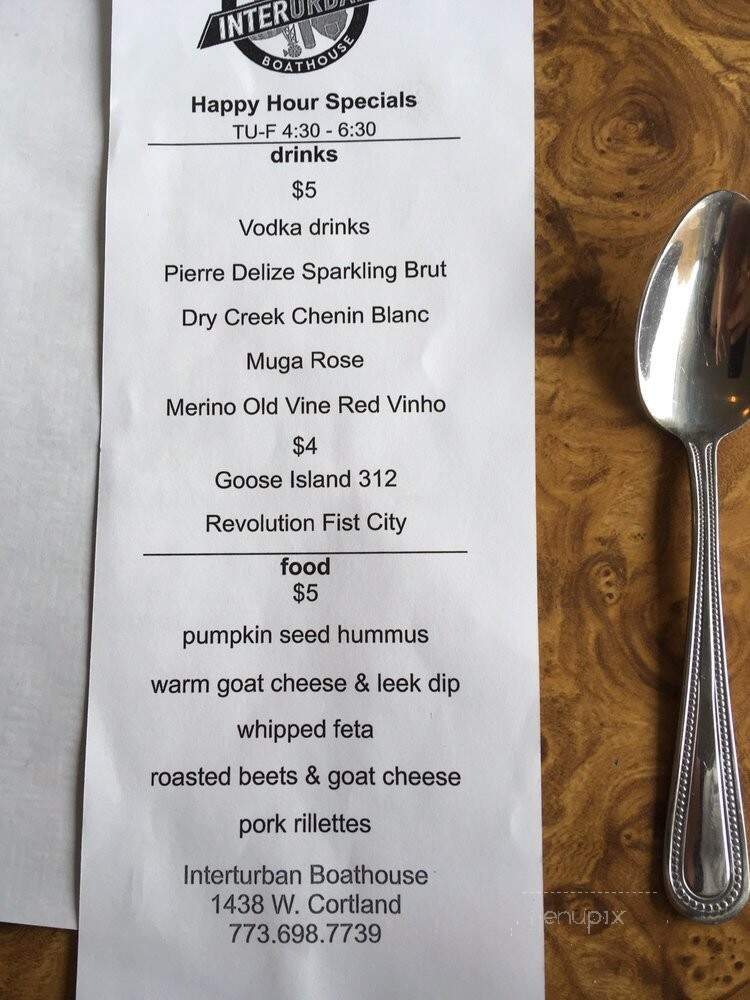 INTERURBAN
BOATHOUSE
Happy Hour Specials
TU-F 4:30 - 6:30
drinks
$5
Vodka drinks
Pierre Delize Sparkling Brut
Dry Creek Chenin Blanc
Muga Rose
Merino Old Vine Red Vinho
$4
Goose Island 312
Revolution Fist City
food
$5
pumpkin seed hummus
warm goat cheese & leek dip
whipped feta
roasted beets & goat cheese
pork rillettes
Interturban Boathouse
1438 W. Cortland
773.698.7739
menupix